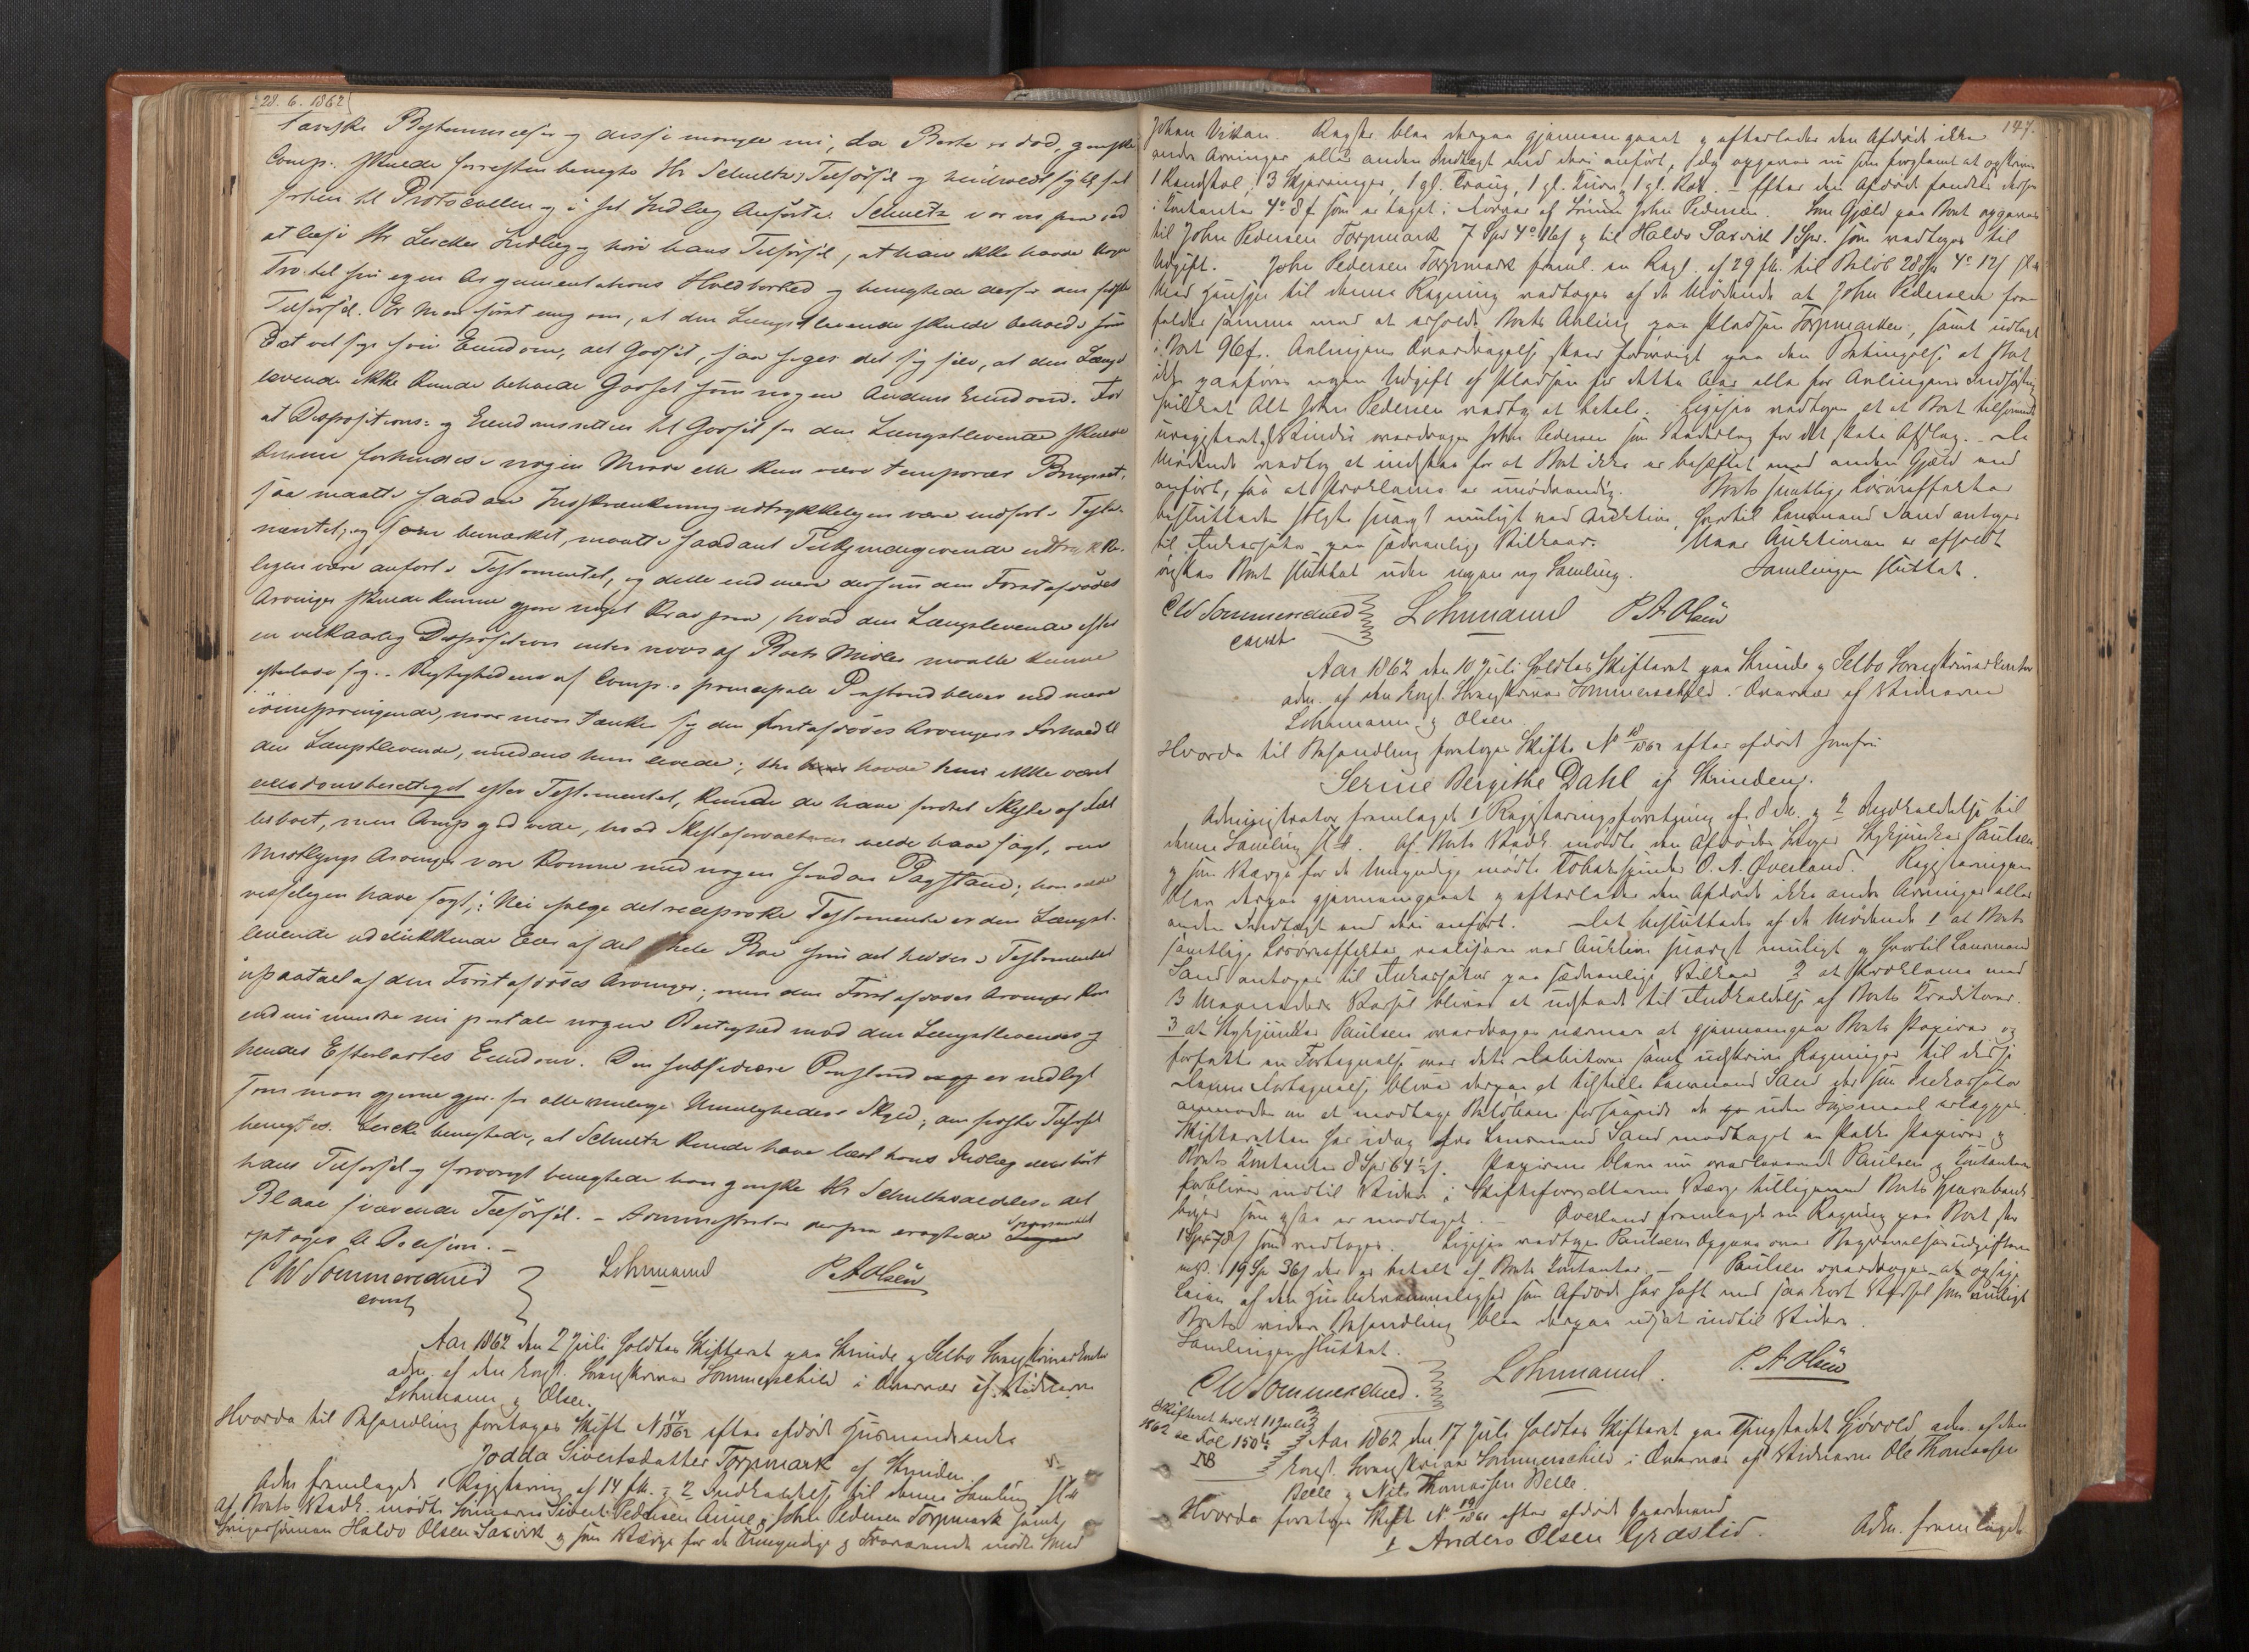 28. 6. 1862
tariske Bestemmelser og disse mangle nu, da Beste er død, ganske
Comp. skulde forresten benegte Hr Schultz's Tilførsel og henholdt sig til sit
forhen til Protocollen og i sit Indlæg Anførte. Schultz var
at læse Hr Lerckes Indlæg og høre hans Tilførsel, at han ikke havde
Tro til sin egen Argumentations Holdbarhed og benegtede derfor
Tilførsel. Er man først enig om, at den Længstlevende skulde beholde som
Det vil sige som Eiendom, alt Godset, saa siger det sig selv, at den Længst
levende ikke kunde beholde Godset som nogen Andens Eiendom. For
at Dispositions- og Eiendomsretten til Godset for den Længstlevende skulde
kunne forhindres i nogen Maade eller kun være temporær Brugsret,
saa maatte saadan Indskrænkning udtrykkeligen være indført i Testa-
mentet; og som bemærket, maatte saadant Tilkjendegivende udtrykke-
ligen være anført i Testamentet, og dette end mere dersom den Førstafdødes
Arvinger skulde kunne gjøre noget Krav paa, hvad den Længstlevende efter
en vilkaarlig Disposition inter vivos af Boets Midler maatte kunne
efterlade sig. Rigtigheden af Comp.s principale Paastand bliver end mere
iøinespringende, naar man tænker sig den førstafdødes Arvingers Forhold til
den Længstlevende, medens hun levede; thi havde hun ikke været
eiendomsberettiget efter Testamentet, kunde de have fordret Skifte af Fæl
lesboet, men Comp. gad vide, hvad Skifteforvalteren vilde have sagt, om
Arvinger vare komne med nogen saadan Paastand; han vilde
visseligen have sagt: Nei ifølge det reciproke Testamente er den Længst-
levende udelukkende Eier af det hele Boe som det hedder i Testamentet
upaatalt af den Førstafdødes Arvinger; men den Førstafdødes Arvinger kan
end mindre nu paatale nogen Rettighed mod den Længstlevendes
hendes Efterladtes Eiendom. Den subsidiære Paastand er nedlagt
som man gjerne gjør for alle mulige Umuligheders Skyld;
benegtes. Lercke benegtede, at Schultz kunde have læst hans Indlæg eller hørt
hans Tilførsel og forøvrigt benegtede han ganske Hr Schultz
Blaae svævende Tilførsel. – Administrator derpaa eragtede
optages til Decision. –
CW Sommerschield Lohmann P. A. Olsen
const
Aar 1862 den 2 Juli holdtes Skifteret paa Strinde og Selbo Sorenskriverkontor
adm. af den const. Sorenskriver Sommerschield i Overvær af Vidnerne
Lohmann og Olsen.
Hvorda til Behandling foretoges Skift N 14/1862 efter afdøde Husmandsenke
Jødda Sivertsdatter Torpmark af Strinden.
Adm. fremlagde 1 Registrering af 14 f.M. og 2 Indkaldelse til denne Samling
Af Boets Vedk. mødte Sønnerne Sivert Pedersen Aune og John Pedersen Torpmark samt
Svigersønnen Haldo Olsen Saxvik og som Værge for de Umyndige og Fraværende mødte
147.
Johan Vikan. Registr. blev derpaa gjennemgaaet og efterlader den Afdøde ikke
andre Arvinger eller anden Indtægt end deri anført, dog opgaves nu som forglemt at opskrive
1 Kandstol, 3 Skjæringer, 1 gl. Traug, 1 gl. – Efter den Afdøde fandtes derhos
i Kontanter 4 8 s som er taget i Forvar af Sønnen John Pedersen. Som Gjæld paa Boet opgaves
til John Pedersen Torpmark 7 Spd 4 16 s og til Haldo Saxvik 1 Spd. som vedtoges til
Udgift. John Pedersen Torpmark freml. en Regl. af 29 f.M. til Beløb 28 Spd 4 12 s
Med Hensyn til denne Regning vedtoges af de Mødende at John Pedersen fra-
falder samme mod at erholde Boets Avling paa Pladsen Torpmarken, samt udlagt
i Boet 96 s. Avlingens Overdragelse skeer forøvrigt paa den Betingelse at Boet
ikke paaføres nogen Udgift af Pladsen for dette Aar eller for Avlingens Indhøstning
hvilket Alt John Pedersen vedtog at betale. Ligesaa vedtoges at et Boet tilhørende
uregistreret overdrages John Pedersen som Vederlag for det Afslag. De
Mødende vedtog at indestaa for at Boet ikke er behæftet med anden Gjæld end
anført, saa at Proklama er unødvendig. Boets samtlige Løsøreffekter
besluttedes solgte snarest muligt ved Auktion, hvortil Lensmand Sand antoges
til Inkassator paa sædvanlige Vilkaar. Naar Auktionen er afholdt
ønskes Boet sluttet uden nogen ny Samling. Samlingen sluttet.
CW Sommerschield Lohmann P. A. Olsen
const
Aar 1862 den 10 Juli holdtes Skifteret paa Strinde og Selbo Sorenskriverkontor
adm. af den const. Sorenskriver Sommerschield i Overvær af Vidnerne
Lohmann og Olsen
Hvorda til Behandling foretoges Skifte N 18/1862 efter afdøde Jomfru
Serine Bergithe Dahl af Strinden.
Administrator fremlagde 1 Registreringsforretning af 8 d.M. og 2 Indkaldelse til
denne Samling. Af Boets Vedk. mødte den Afdødes Paulsen
og som Værge for de Umyndige mødte Tobakspinder O. A. Øverland. Registreringen
blev derpaa gjennemgaaet og efterlader den Afdøde ikke andre Arvinger eller
anden Indtægt end deri anført. Det besluttedes af de Mødende 1 at Boets
samtlige Løsøreffekter realiseres ved Auktion snarest muligt og hvortil Lensmand
Sand antoges til Inkassator paa sædvanlige Vilkaar 2 at Proklama med
3 Maaneders Varsel bliver at udstede til Indkaldelse af Boets Kreditorer.
3 at Paulsen overdrages nærmere at gjennemgaa Boets Papirer og
forfatte en Fortegnelse over dets Debitorer samt udskrive Regninger til disse
denne Fortegnelse bliver derpaa at tilstille Lensmand Sand der som Inkassator
anmodes om at modtage Beløbene forsaavidt de uden Søgsmaal erlægges.
Skifteretten har idag fra Lensmand Sand modtaget en Pakke Papirer og
Boets Kontanter 8 Spd 64 ½ s. Papirerne bleve nu overleveret Paulsen og Kontanterne
forbliver indtil Videre i Skifteforvalterens Værge tilligemed Boets Sparebank-
bøger som ogsaa er modtaget. – Øverland fremlagde en Regning paa Boet stor
1 Spd 78 s som vedtoges. Ligesaa vedtoges Paulsens Opgave over Begravelsesudgifterne
19 Sp 36 s der er betalt af Boets Kontanter. – Paulsen overdroges at opsige
Leien af den Huusbekvemmelighed som Afdøde har havt med saa kort Varsel som muligt
Boets videre Behandling blev derpaa udsat indtil Videre.
Samlingen sluttet.
CW Sommerschield. Lohmann. P. A. Olsen
Skifteret holdt 11 Juli
1862 se Fol 150
NB
Aar 1862 den 17 Juli holdtes Skifteret paa Thingstedet Gjøvold adm. af den
const. Sorenskriver Sommerschield i Overvær af Vidnerne Ole Thomassen
Velle og Nils Thomassen Velle.
Hvorda foretoges Skift N 19/1861 efter afdøde Gaardmand
Anders Olsen Græslid. Adm. fremlagde